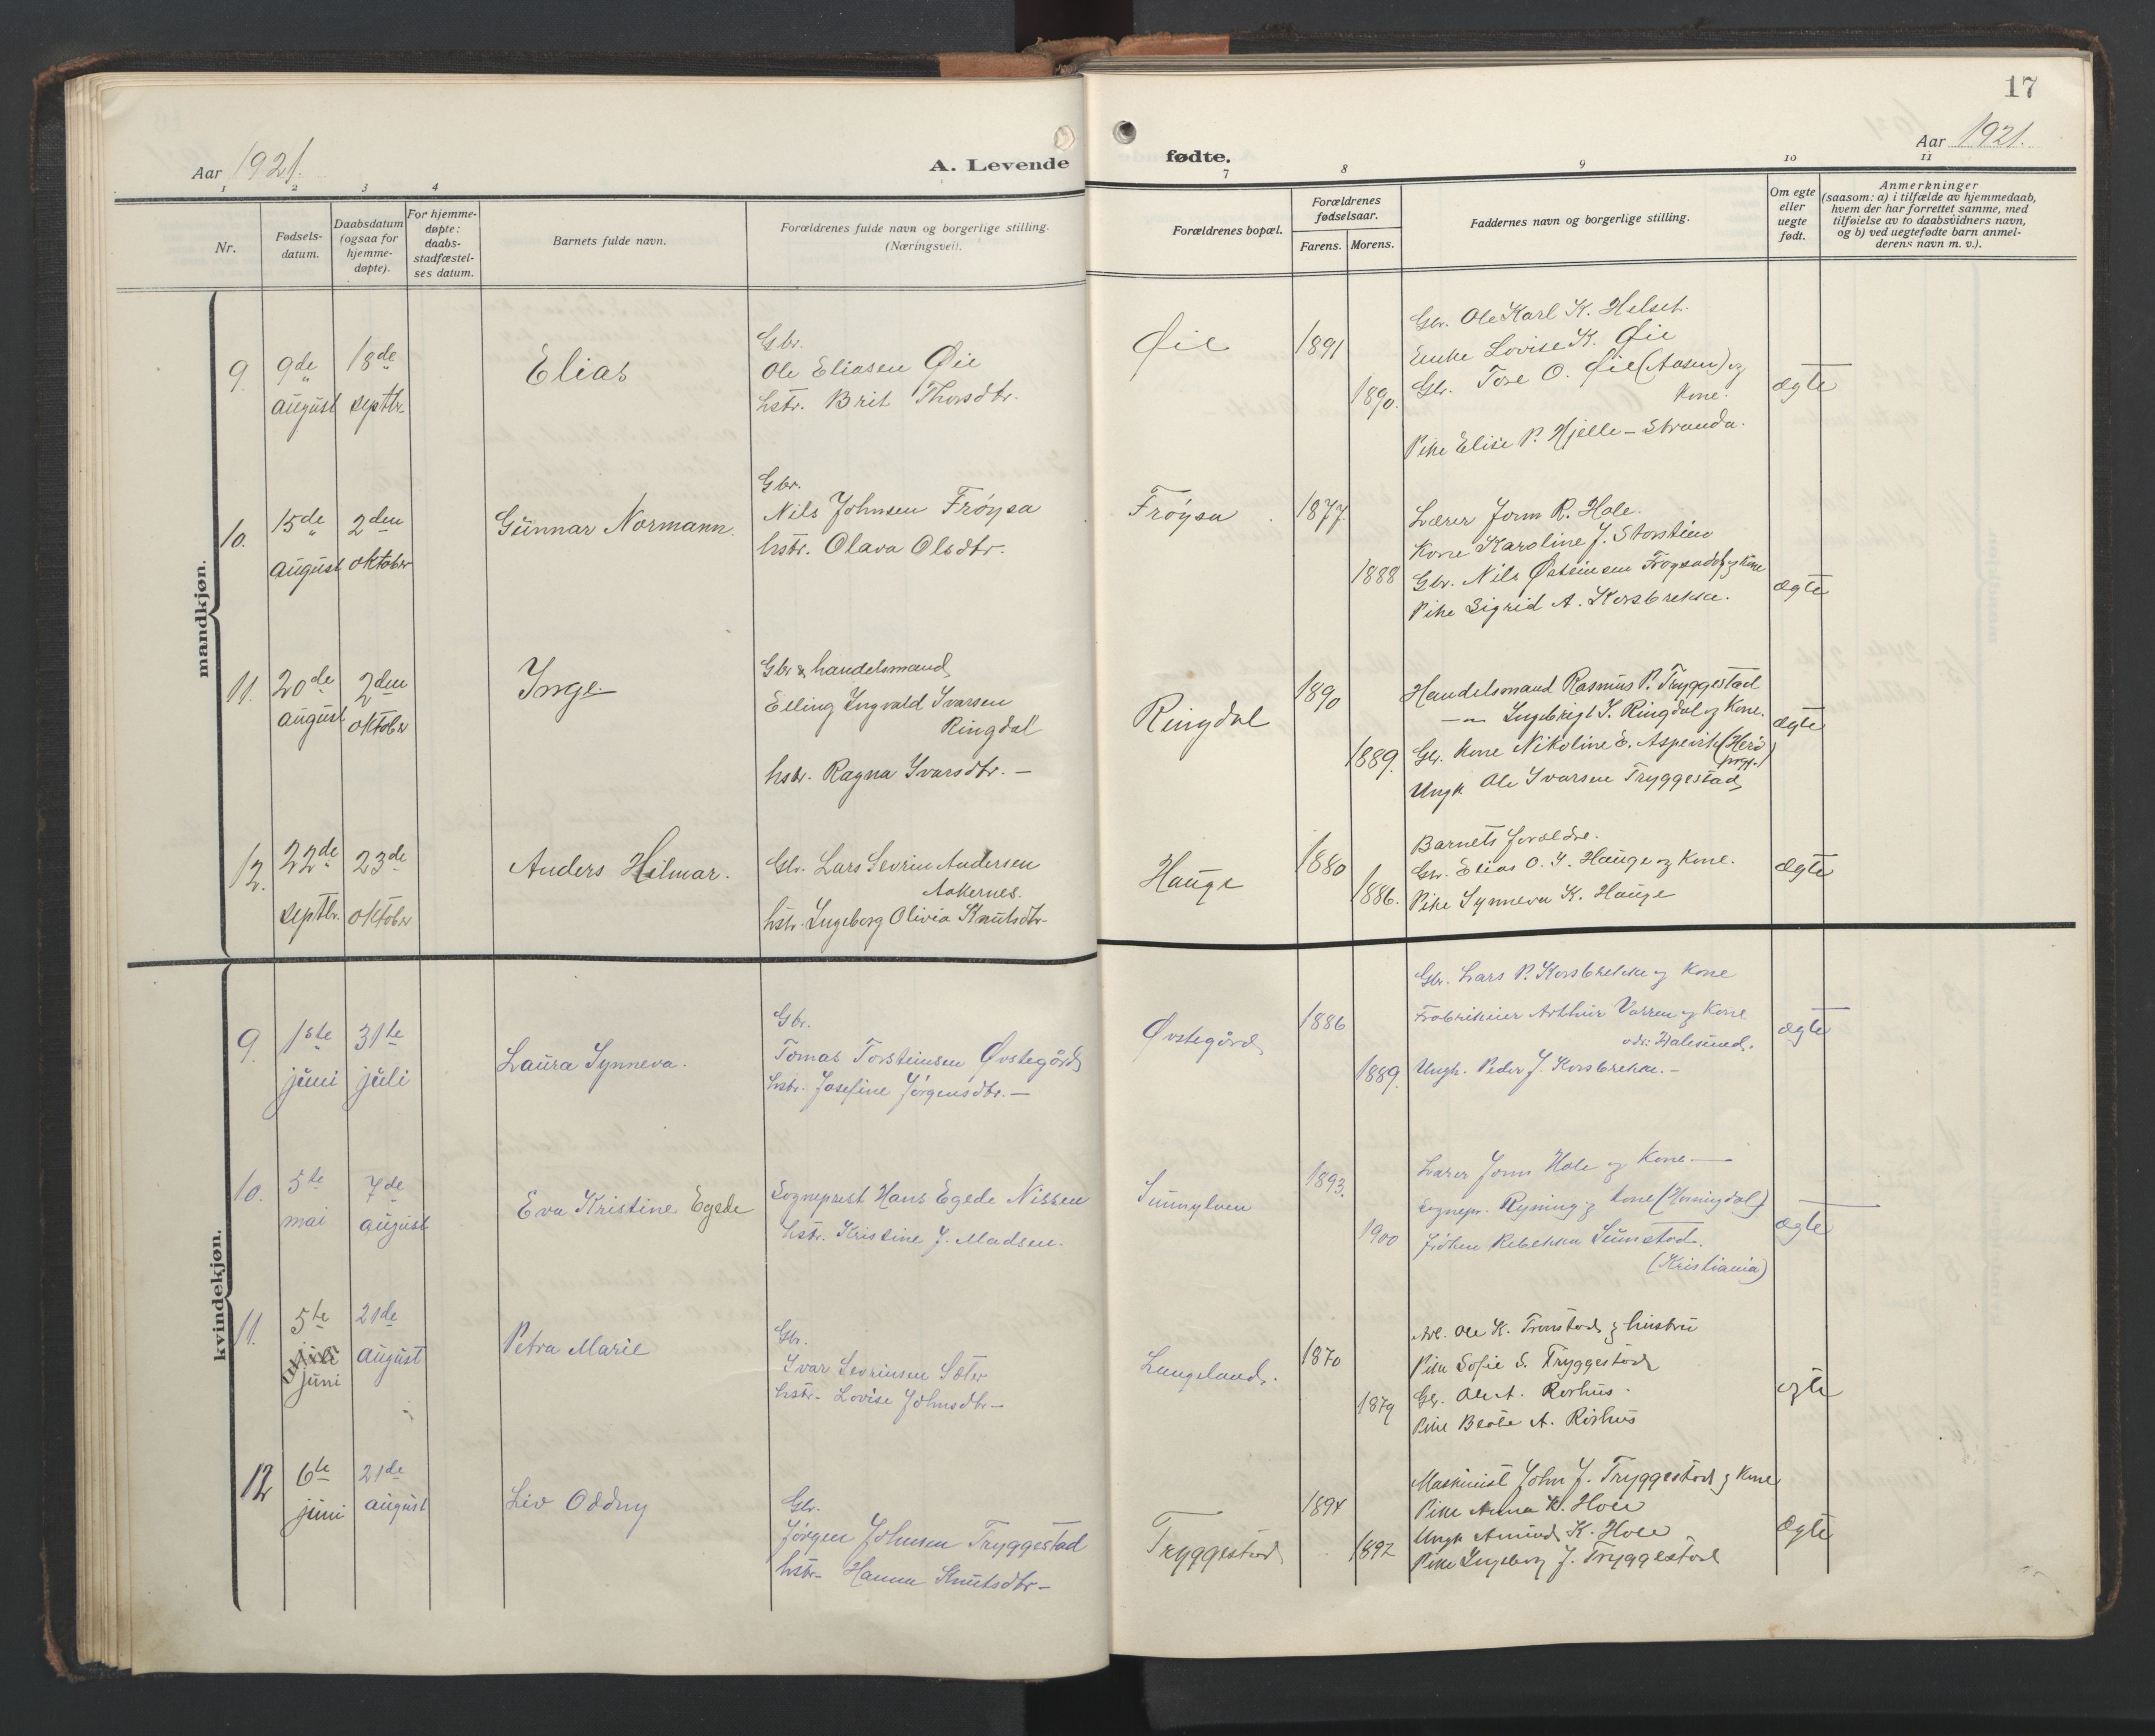 17
Aar 1921.
A. Levende
fødte.
Aar 1921.
1 2 3 4
7 8 9 10 11
Nr.
Fødsels-
datum.
Daabsdatum
(ogsaa for
hjemme-
døpte).
For hjemme-
døpte:
daabs-
stadfæstel-
ses datum.
Barnets fulde navn.
Forældrenes fulde navn og borgerlige stilling.
(Næringsvei).
Forældrenes bopæl.
Forældrenes
fødselsaar.
Farens. Morens.
Faddernes navn og borgerlige stilling.
Om egte
eller
uegte
født.
Anmerkninger
(saasom: a) i tilfælde av hjemmedaab,
hvem der har forrettet samme, med
tilføielse av to daabsvidners navn,
og b) ved uegtefødte barn anmel-
derens navn m. v.).
mandkjøn.
9.
9de
august
18de
septbr.
Elias
Gbr.
Ole Eliasen Øie
hstr. Brit Thorsdtr.
Øie
1891
1890.
Gbr. Ole Karl K. Helset.
Enke Lovise K. Øie
Gbr. Tore O. Øie (Aasen) og
Kone.
Pike Elise P. Hjelle - Stranda.
ægte
10.
15de
august
2den
oktober
Gunnar Normann.
Gbr.
Nils Johnsen Frøysa
hstr. Olava Olsdtr.
Frøysa
1877
1888
Lærer Jonn R. Hole.
Kone Karoline J. Storstein
Gbr. Nils Østeinsen og Kone
Pike Sigrid A. Korsbrekke.
ægte
11.
20de
august
2den
oktober
Inge
Gbr & handelsmand
Elling Ingvald Ivarsen
Ringdal
hstr. Ragna Ivarsdtr. -
Ringdal
1890
1889.
Handelsmand Rasmus P. Tryggestad
-"- Ingebrigt I. Ringdal og Kone.
Gbr. Kone Nikoline E. Aspevik (Herø
prgj.)
Ungk Ole Ivarsen Tryggestad
ægte
12.
22de
septbr.
23de
oktober
Anders Hilmar.
Gbr. Lars Sevrin Andersen
Aakernes.
hstr. Ingeborg Olivia Knutsdtr-
Hauge
1880
1886.
Barnets foreldre.
Gbr. Elias O. I. Hauge og Kone.
Pike Synneva K. Hauge
ægte
kvindekjøn.
9.
1ste
juni
31te
juli
Laura Synneva.
Gbr.
Tomas Torsteinsen Øvstegård
hstr. Josefine Jørgensdtr. -
Øvstegård
1886
1889.
Gbr. Lars P. Korsbrekke og Kone
Fabrikeier Arthur Varren og Kone
Ungk. Peder J. Korsbrekke. -
ægte
10.
5te
mai
7de
august
Eva Kristine Egede
Sogneprest Hans Egede Nissen
hstr. Kristine J. Madsen.
Sunnylven
1893.
1900
Lærer Jonn Hole og Kone. -
Sognepr. Ryning og kone (Hornigdal)
Frøken Rebekka Sunnstad.
(Kristiania)
ægte
11.
5te
juni
21de
august
Petra Marie
Gbr.
Ivar Sevrinsen Sæter
hstr. Lovise Johnsdtr -
Langeland.
1870
1879
Arb. Ole K. Tronstad og hustru
Pike Sofie S. Tryggestad
Gbr. Ole A. Rørhus.
Pike Beate A. Rørhus
egte
12
6te
juni
21de
august
Liv Oddny
Gbr.
Jørgen Johnsen Tryggestad
hstr. Hanna Knutsdtr -
Tryggestad
1894
1892
Maskinist John J. Tryggestad og Kone
Pike Anna K. Hole
Ungk Amund K. Hole
Pike Ingeborg J. Tryggestad
Ægte